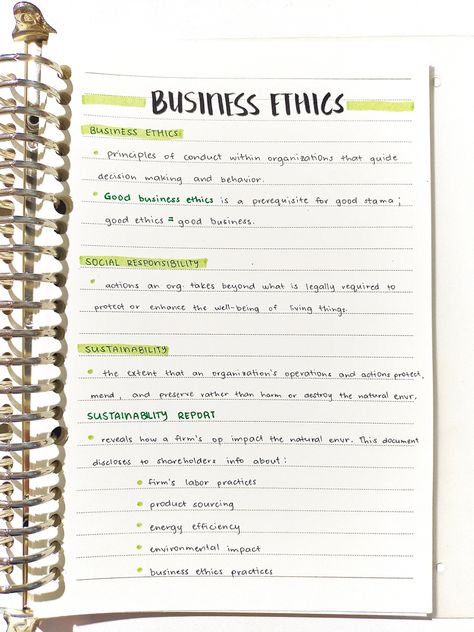 BUSINESS ETHICS
BUSINESS ETHICS
• principles of conduct within organizations that guide
decision making and behavior.
• Good business ethics is a prerequisite for good stama;
good ethics = good business.
SOCIAL RESPONSIBILITY
• actions an org. takes beyond what is legally required to
protect or enhance the well-being of living things.
SUSTAINABILITY
• the extent that an organization's operations and actions protect,
mend, and preserve rather than harm or destroy the natural envr.
SUSTAINABILITY REPORT
• reveals how a firm's op impact the natural envr. This document
discloses to shareholders info about:
• firm's labor practices
• product sourcing
• energy efficiency
• environmental impact
• business ethics practices